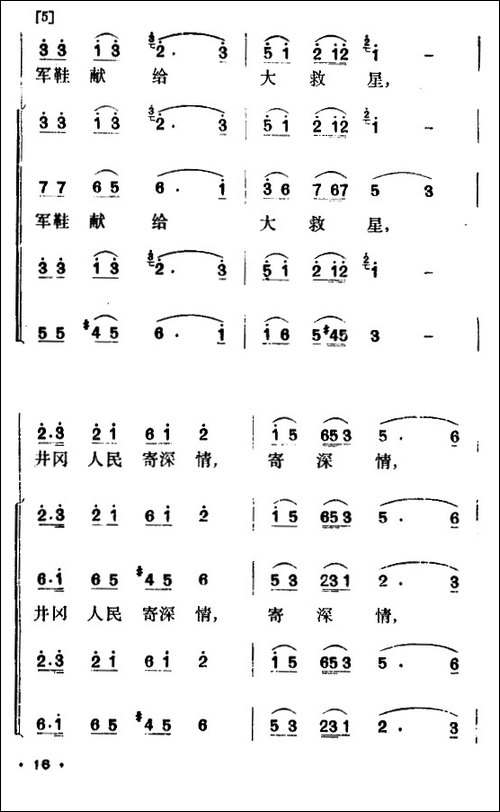 [5]
3 3 1 3 3/2. 3 | 5 1 2 12 2/1 – |
军鞋 献 给 大 救 星,
3 3 1 3 3/2. 3 | 5 1 2 12 2/1 – |
7 7 6 5 6 . 1 | 3 6 7 67 5 3 |
军鞋 献 给 大 救 星,
3 3 1 3 3/2. 3 | 5 1 2 12 2/1 – |
5 5 #4 5 6 . 1 | 1 6 5 #45 3 – |
2.3 2 1 6 1 2 | 1 5 653 5 . 6 |
井冈 人民 寄深 情, 寄 深 情,
2.3 2 1 6 1 2 | 1 5 653 5 . 6 |
6.1 6 5 #4 5 6 | 5 3 231 2 . 3 |
井冈 人民 寄深 情, 寄 深 情,
2.3 2 1 6 1 2 | 1 5 653 5 . 6 |
6.1 6 5 #4 5 6 | 5 3 231 2 . 3 |
· 16 ·